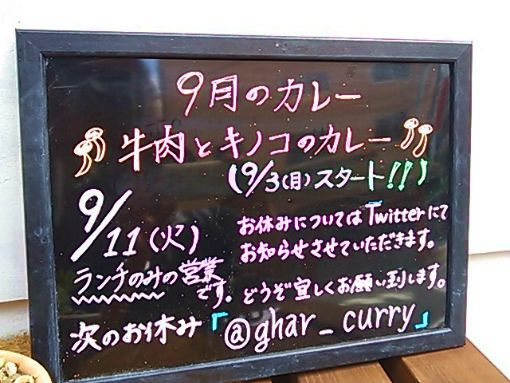 9月のカレー
牛肉とキノコのカレー
(9/3(月)スタート!!)
9/11(火)
ランチのみの営業
です。
お休みについてはTwitterにて
お知らせさせていただきます。
どうぞ宜しくお願い致します。
次のお休み「@ghar_curry」